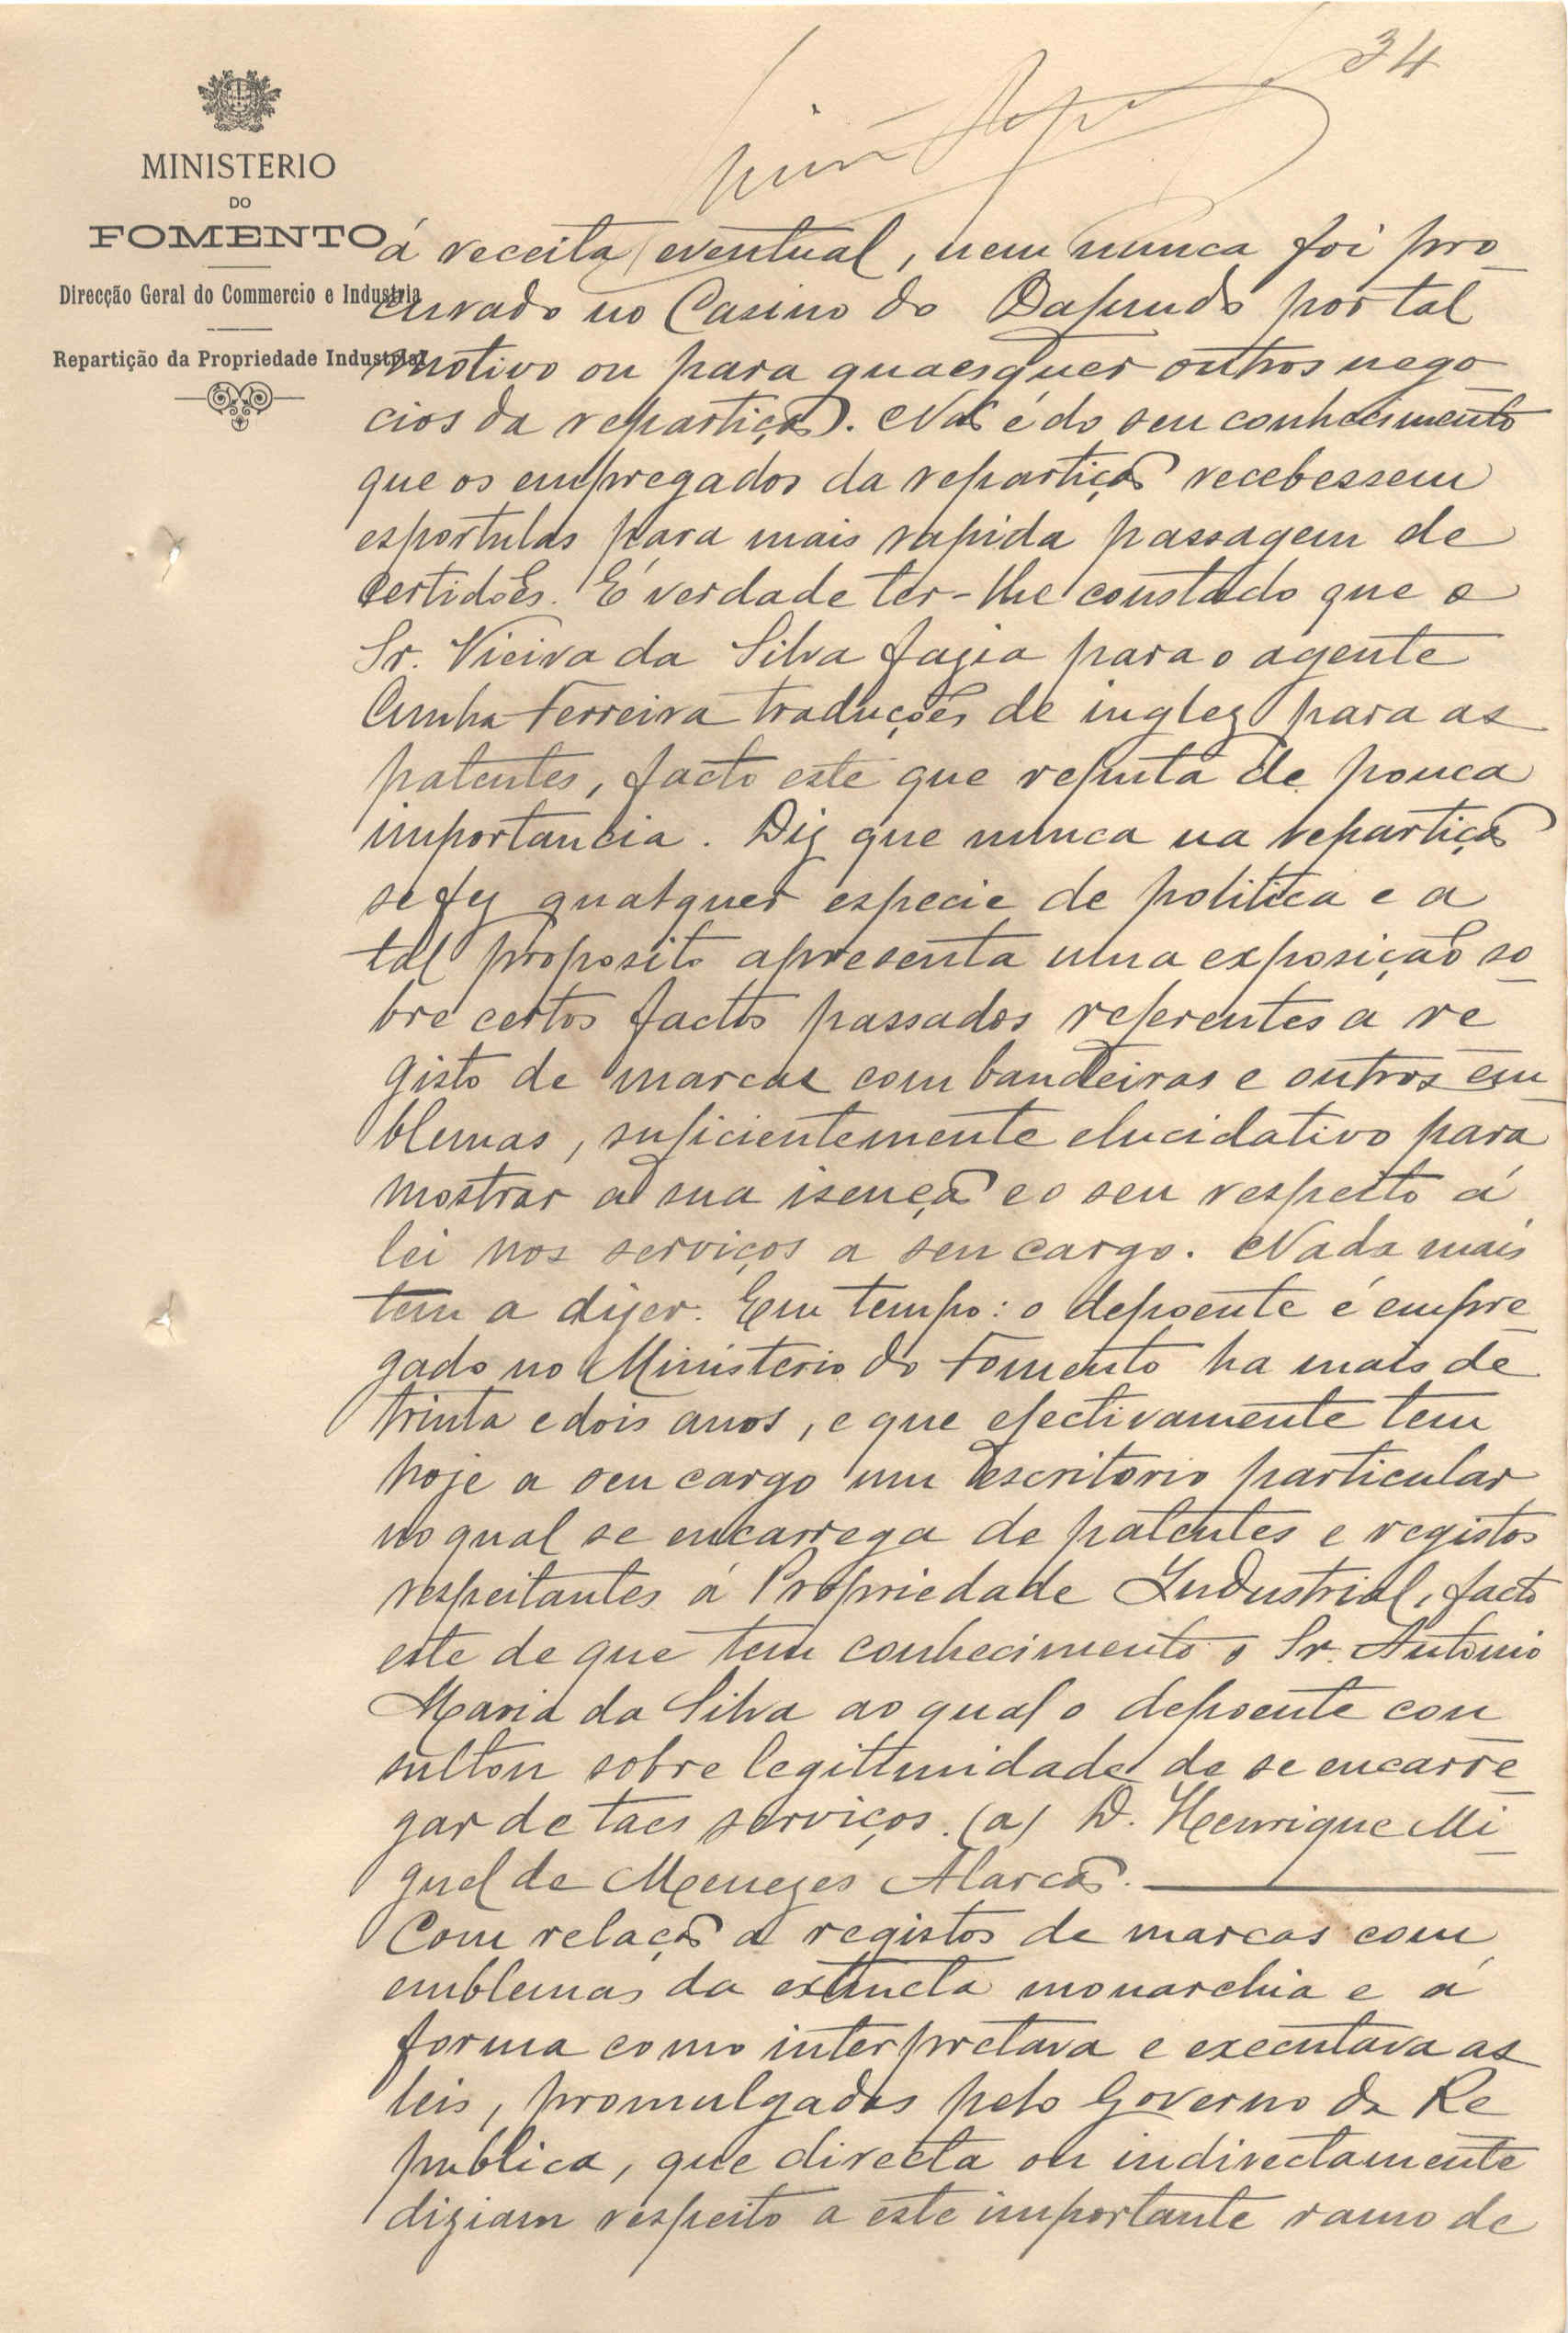 34
MINISTERIO
DO
FOMENTO
Direcção Geral do Commercio e Industria
Repartição da Propriedade Industrial
á receita eventual, nem nunca foi pro
curado no Casino do Dafundo por tal
motivo ou para quaesquer outros nego
cios da repartição. Não é do seu conhecimento
que os empregados da repartição recebessem
esportulas para mais rapida passagem de
certidões. É verdade ter-lhe constado que o
Sr. Vieira da Silva fazia para o agente
Cunha Ferreira traduções de inglez para as
patentes, facto este que reputa de pouca
importancia. Diz que nunca na repartição
se fez qualquer especie de politica e a
tal proposito apresenta uma exposição so
bre certos factos passados referentes a re
gisto de marcas com bandeiras e outros em
blemas, suficientemente elucidativo para
mostrar a sua isenção e o seu respeito á
lei nos serviços a seu cargo. Nada mais
tem a dizer. Em tempo: o depoente é empre
gado no Ministerio do Fomento ha mais de
trinta e dois anos, e que efectivamente tem
hoje a seu cargo um escritorio particular
no qual se encarrega de patentes e registos
respeitantes á Propriedade Industrial, facto
este de que tem conhecimento o Sr. Antonio
Maria da Silva ao qual o depoente con
sultou sobre legitimidade de se encarre
gar de taes serviços. (a) D. Henrique Mi
guel de Menezes Alarcão.
Com relação a registos de marcas com
emblemas da extincta monarchia e á
forma como interpretava e executava as
leis, promulgadas pelo Governo da Re
publica, que directa ou indirectamente
diziam respeito a este importante ramo de